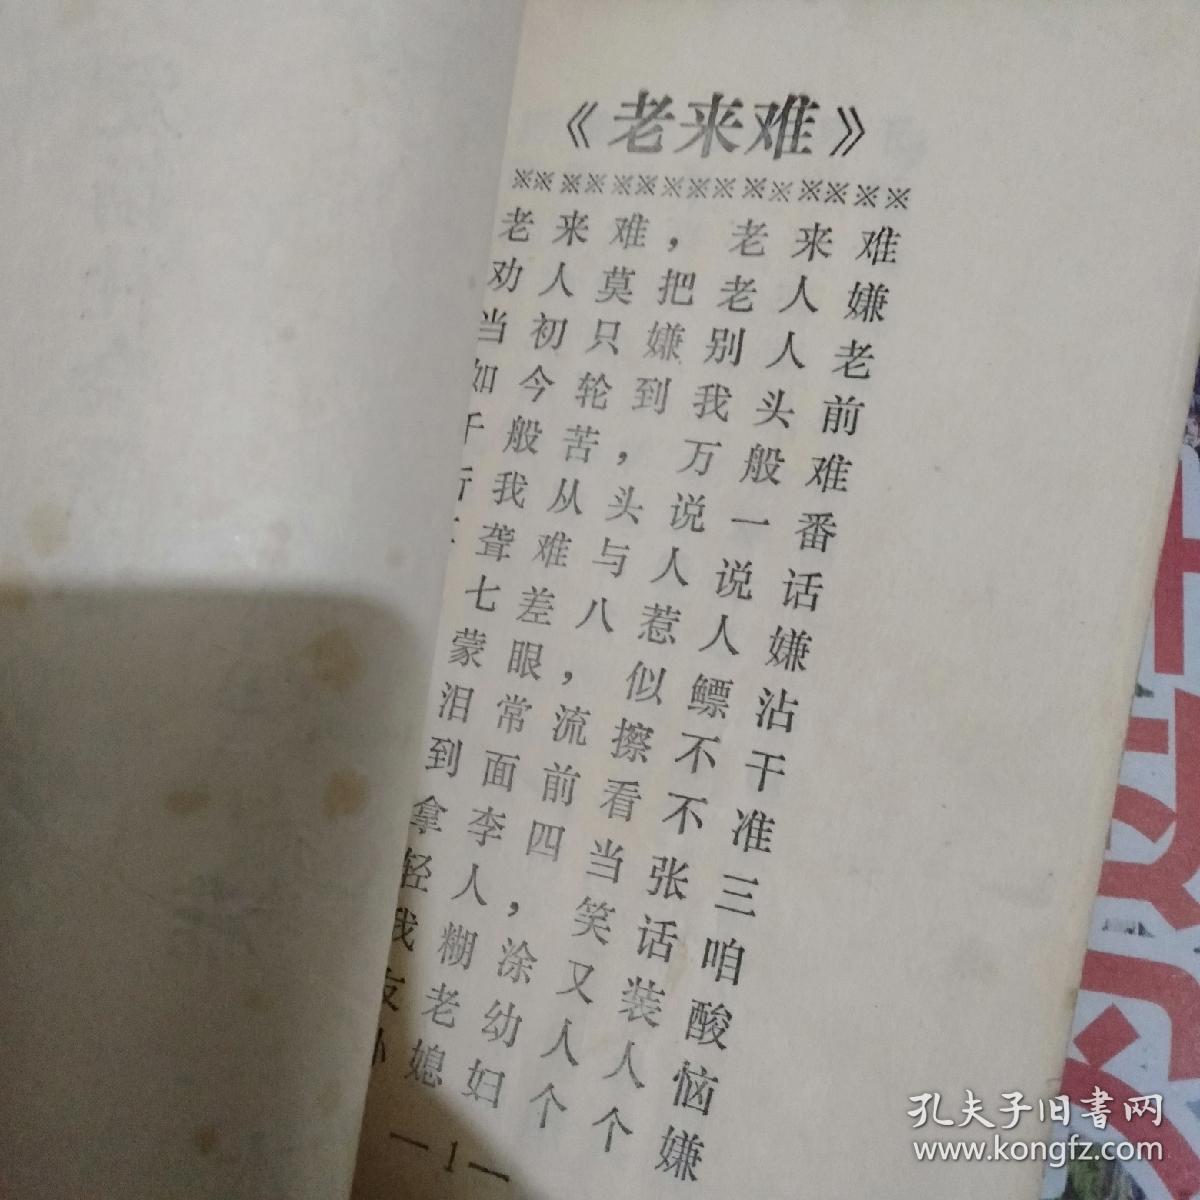 《老来难》
※※※※※※※※※※※※※※※※
老来难，老来难
劝人莫把老人嫌
当初只嫌别人老
如今轮到我头前
千般苦，万般难
听我从头说一番
聋难与人说话
七差八惹人嫌
蒙眼，似鳔沾
泪常流擦不干
到面前看不准
拿李四当张三
轻人，笑话咱
我糊涂又装酸
友老幼人人恼
媳妇个个嫌
—1—
孔夫子旧书网
www.kongfz.com